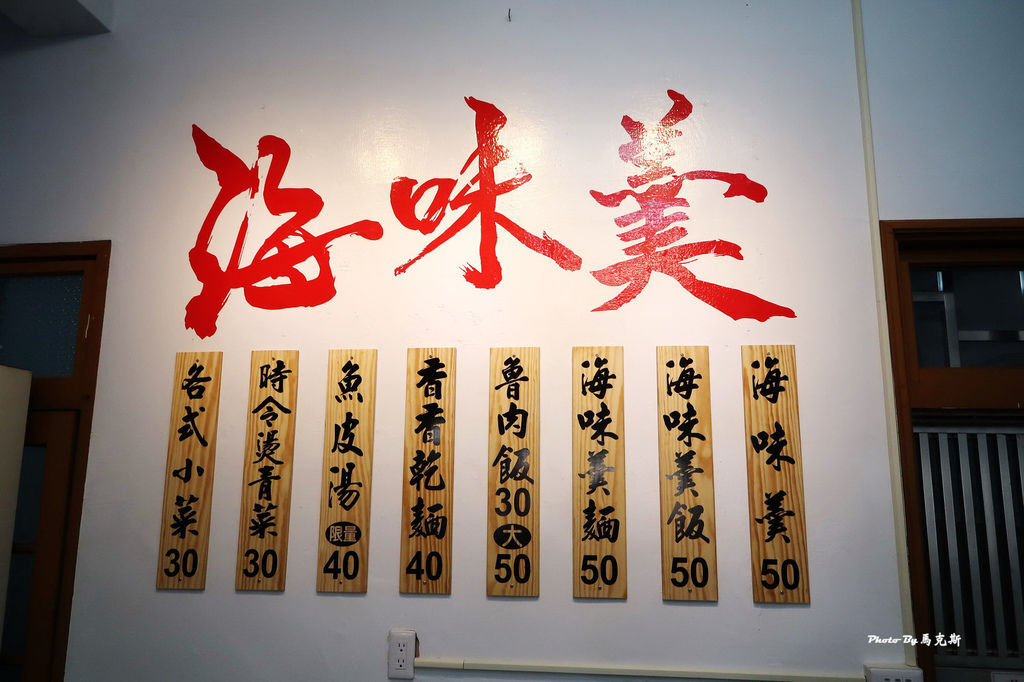 海味羹
海味羹 50
海味羹飯 50
海味羹麵 50
魯肉飯 30 大 50
香香乾麵 40
魚皮湯 限量 40
時令燙青菜 30
各式小菜 30
Photo By 馬克斯